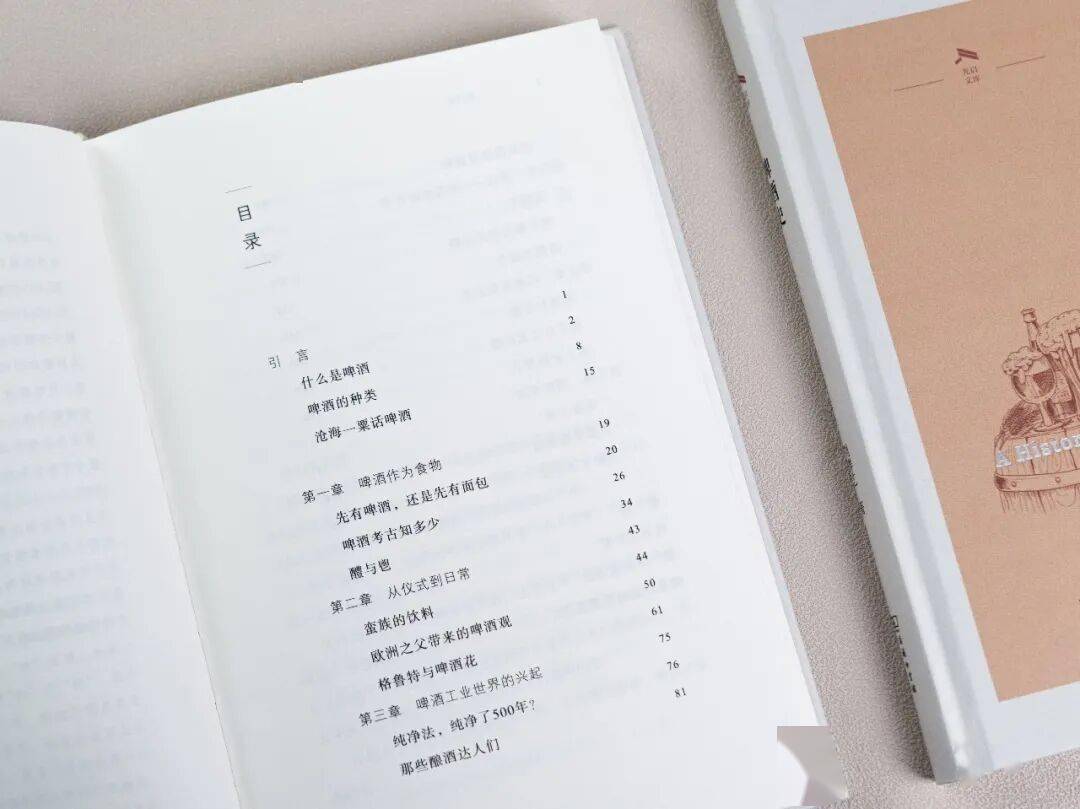 目录
引 言 1
什么是啤酒 2
啤酒的种类 8
沧海一粟话啤酒 15
第一章 啤酒作为食物 19
先有啤酒，还是先有面包 20
啤酒考古知多少 26
醴与鬯 34
第二章 从仪式到日常 43
蛮族的饮料 44
欧洲之父带来的啤酒观 50
格鲁特与啤酒花 61
第三章 啤酒工业世界的兴起 75
纯净法，纯净了500年？ 76
那些酿酒达人们 81
光启
文库
啤酒史
A Histor